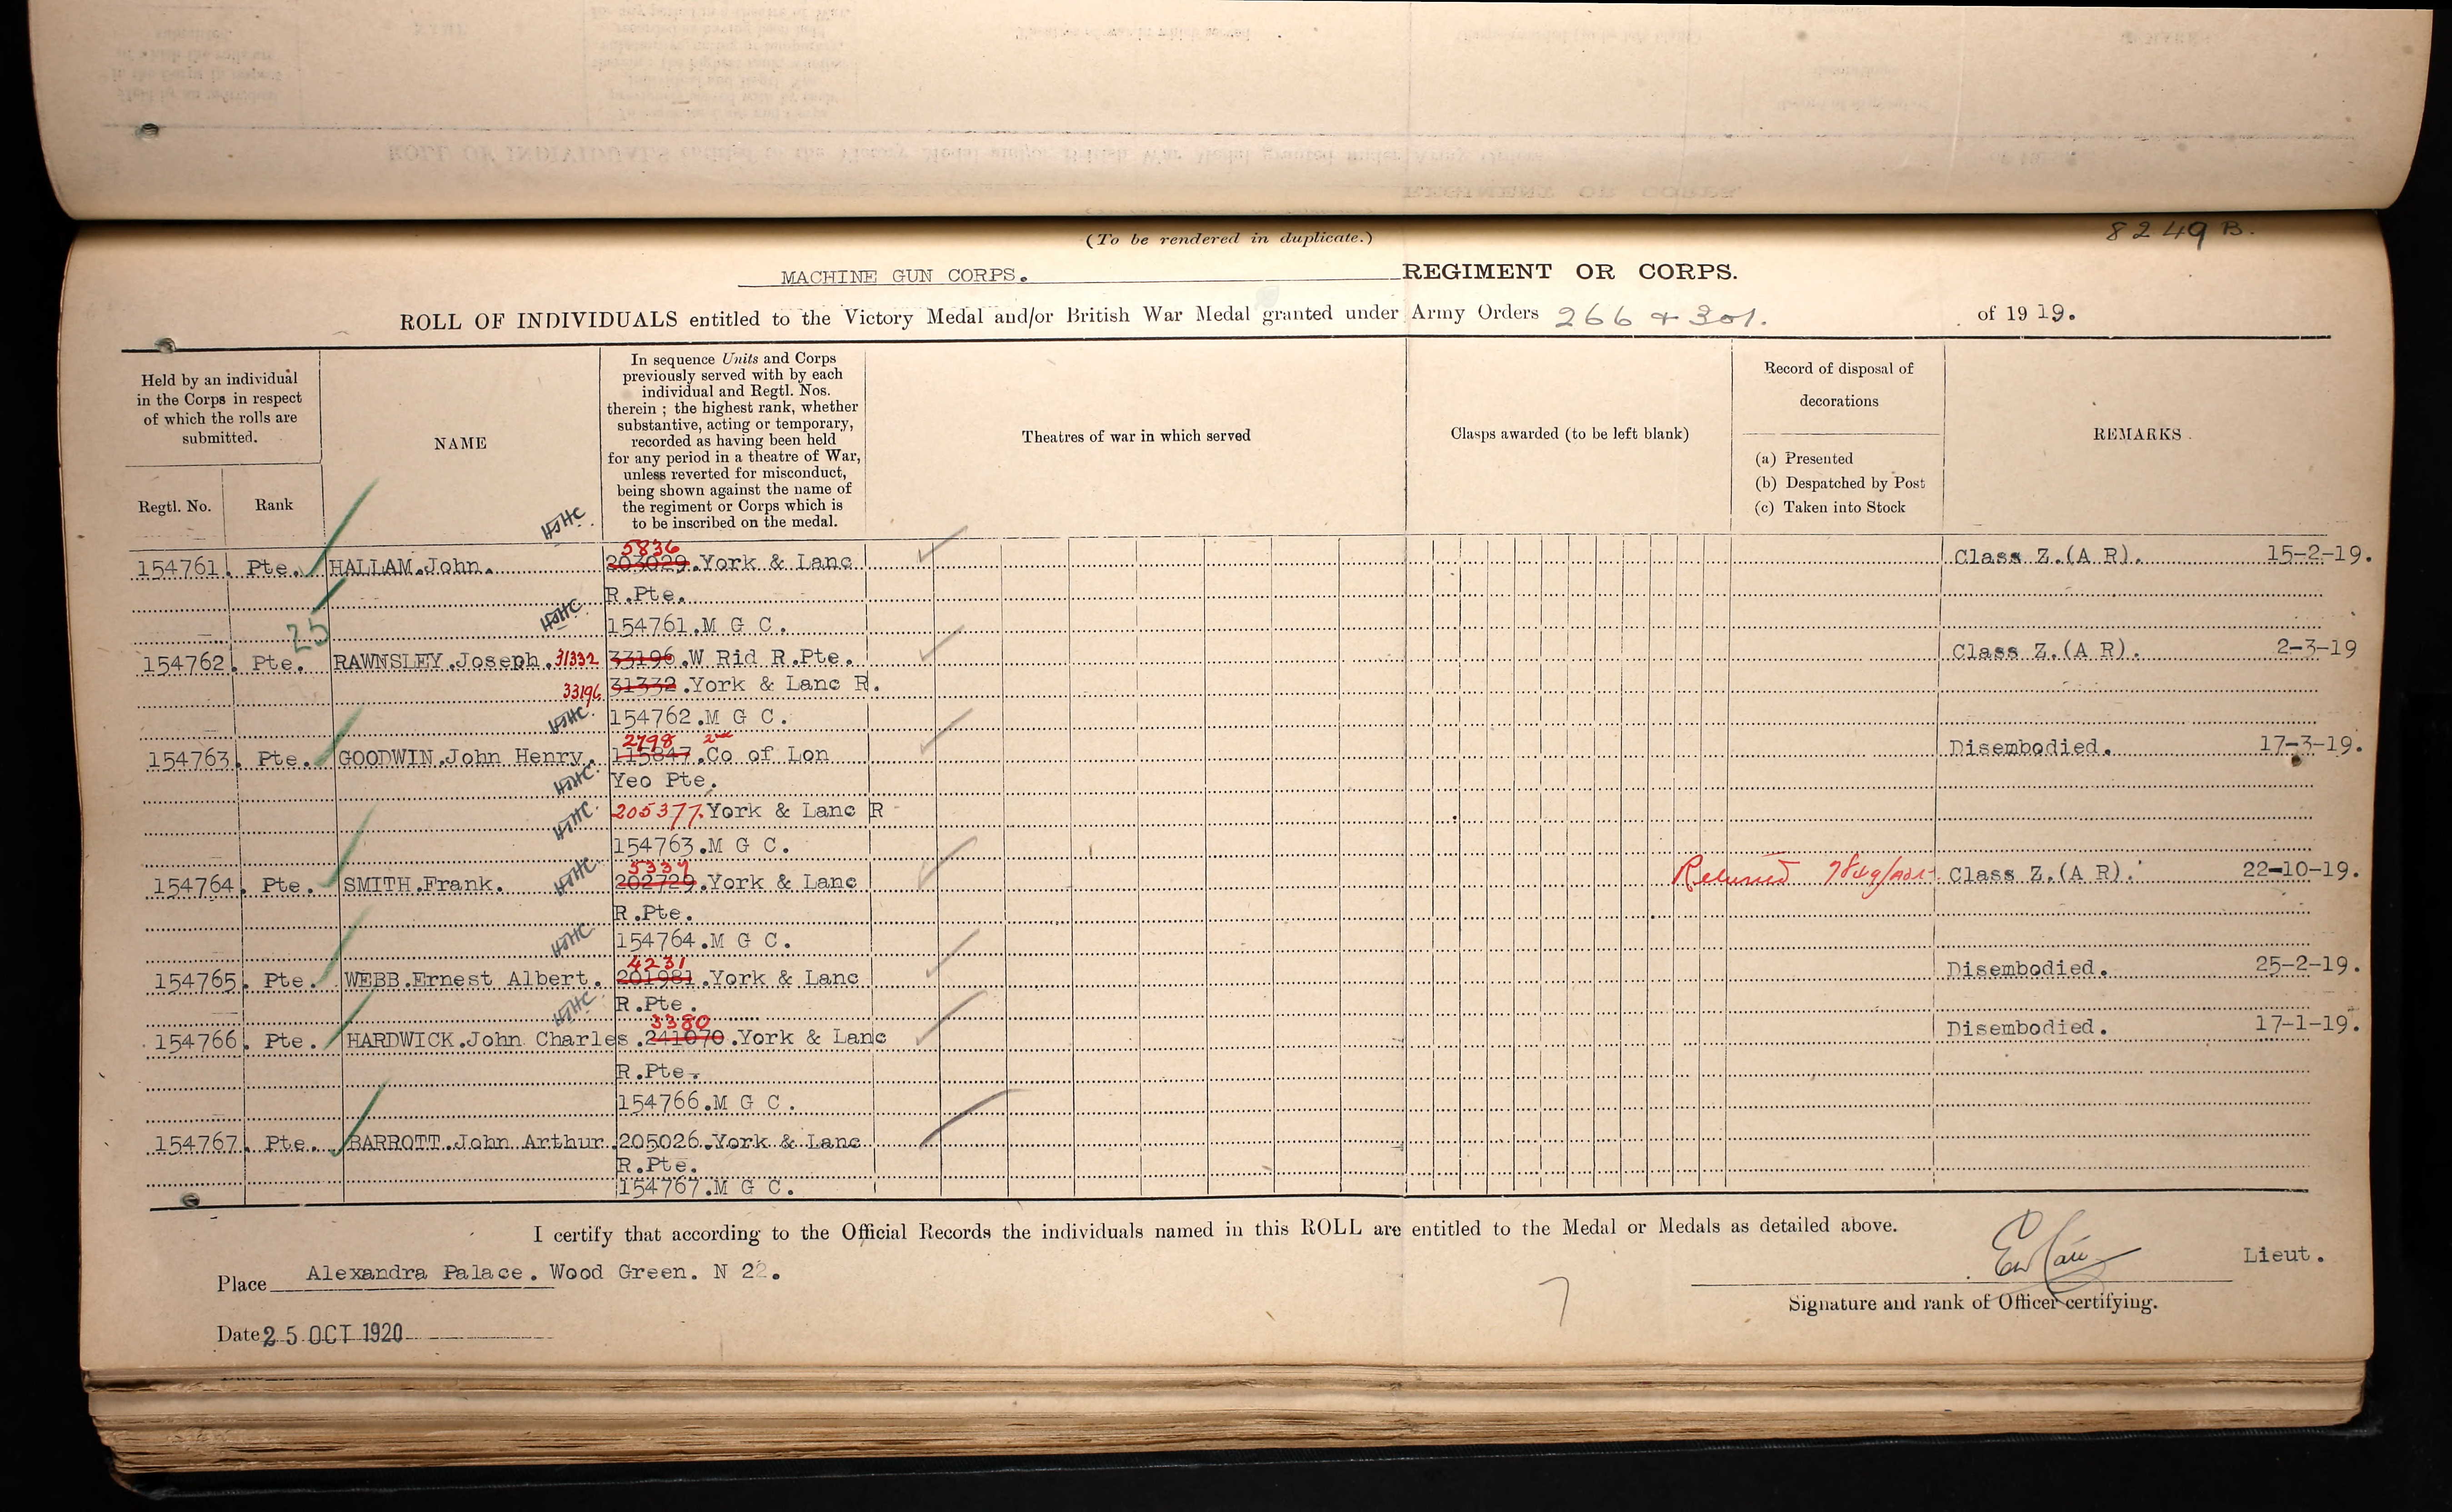 (To be rendered in duplicate.)
8249 B.
MACHINE GUN CORPS. REGIMENT OR CORPS.
ROLL OF INDIVIDUALS entitled to the Victory Medal and/or British War Medal granted under Army Orders 266 & 301. of 1919.
Held by an individual
in the Corps in respect
of which the rolls are
submitted.
Regtl. No.
Rank
NAME
In sequence Units and Corps
previously served with by each
individual and Regtl. Nos.
therein ; the highest rank, whether
substantive, acting or temporary,
recorded as having been held
for any period in a theatre of War,
unless reverted for misconduct,
being shown against the name of
the regiment or Corps which is
to be inscribed on the medal.
Theatres of war in which served
Clasps awarded (to be left blank)
Record of disposal of
decorations
(a) Presented
(b) Despatched by Post
(c) Taken into Stock
REMARKS.
5836
154761. Pte. HALLAM.John. 203029.York & Lanc Class Z.(A R). 15-2-19.
R.Pte.
25
154761.M G C.
154762. Pte. RAWNSLEY.Joseph. 31332 33196.W Rid R.Pte. Class Z.(A R). 2-3-19
33196 31332.York & Lanc R.
154762.M G C.
2798 2nd
154763. Pte. GOODWIN.John Henry. 115847.Co of Lon Disembodied. 17-3-19.
Yeo Pte.
205377.York & Lanc R
154763.M G C.
5337
154764. Pte. SMITH.Frank. 202729.York & Lanc Returned Class Z.(A R). 22-10-19.
R.Pte.
154764.M G C.
4231
154765. Pte. WEBB.Ernest Albert. 201981.York & Lanc Disembodied. 25-2-19.
R.Pte.
3380
154766. Pte. HARDWICK.John Charles.241070.York & Lanc Disembodied. 17-1-19.
R.Pte.
154766.M G C.
154767. Pte. BARROTT.John Arthur 205026.York & Lanc
R.Pte.
154767.M G C.
I certify that according to the Official Records the individuals named in this ROLL are entitled to the Medal or Medals as detailed above.
Place Alexandra Palace. Wood Green. N 22.
Lieut.
Signature and rank of Officer certifying.
7
Date 25 OCT 1920